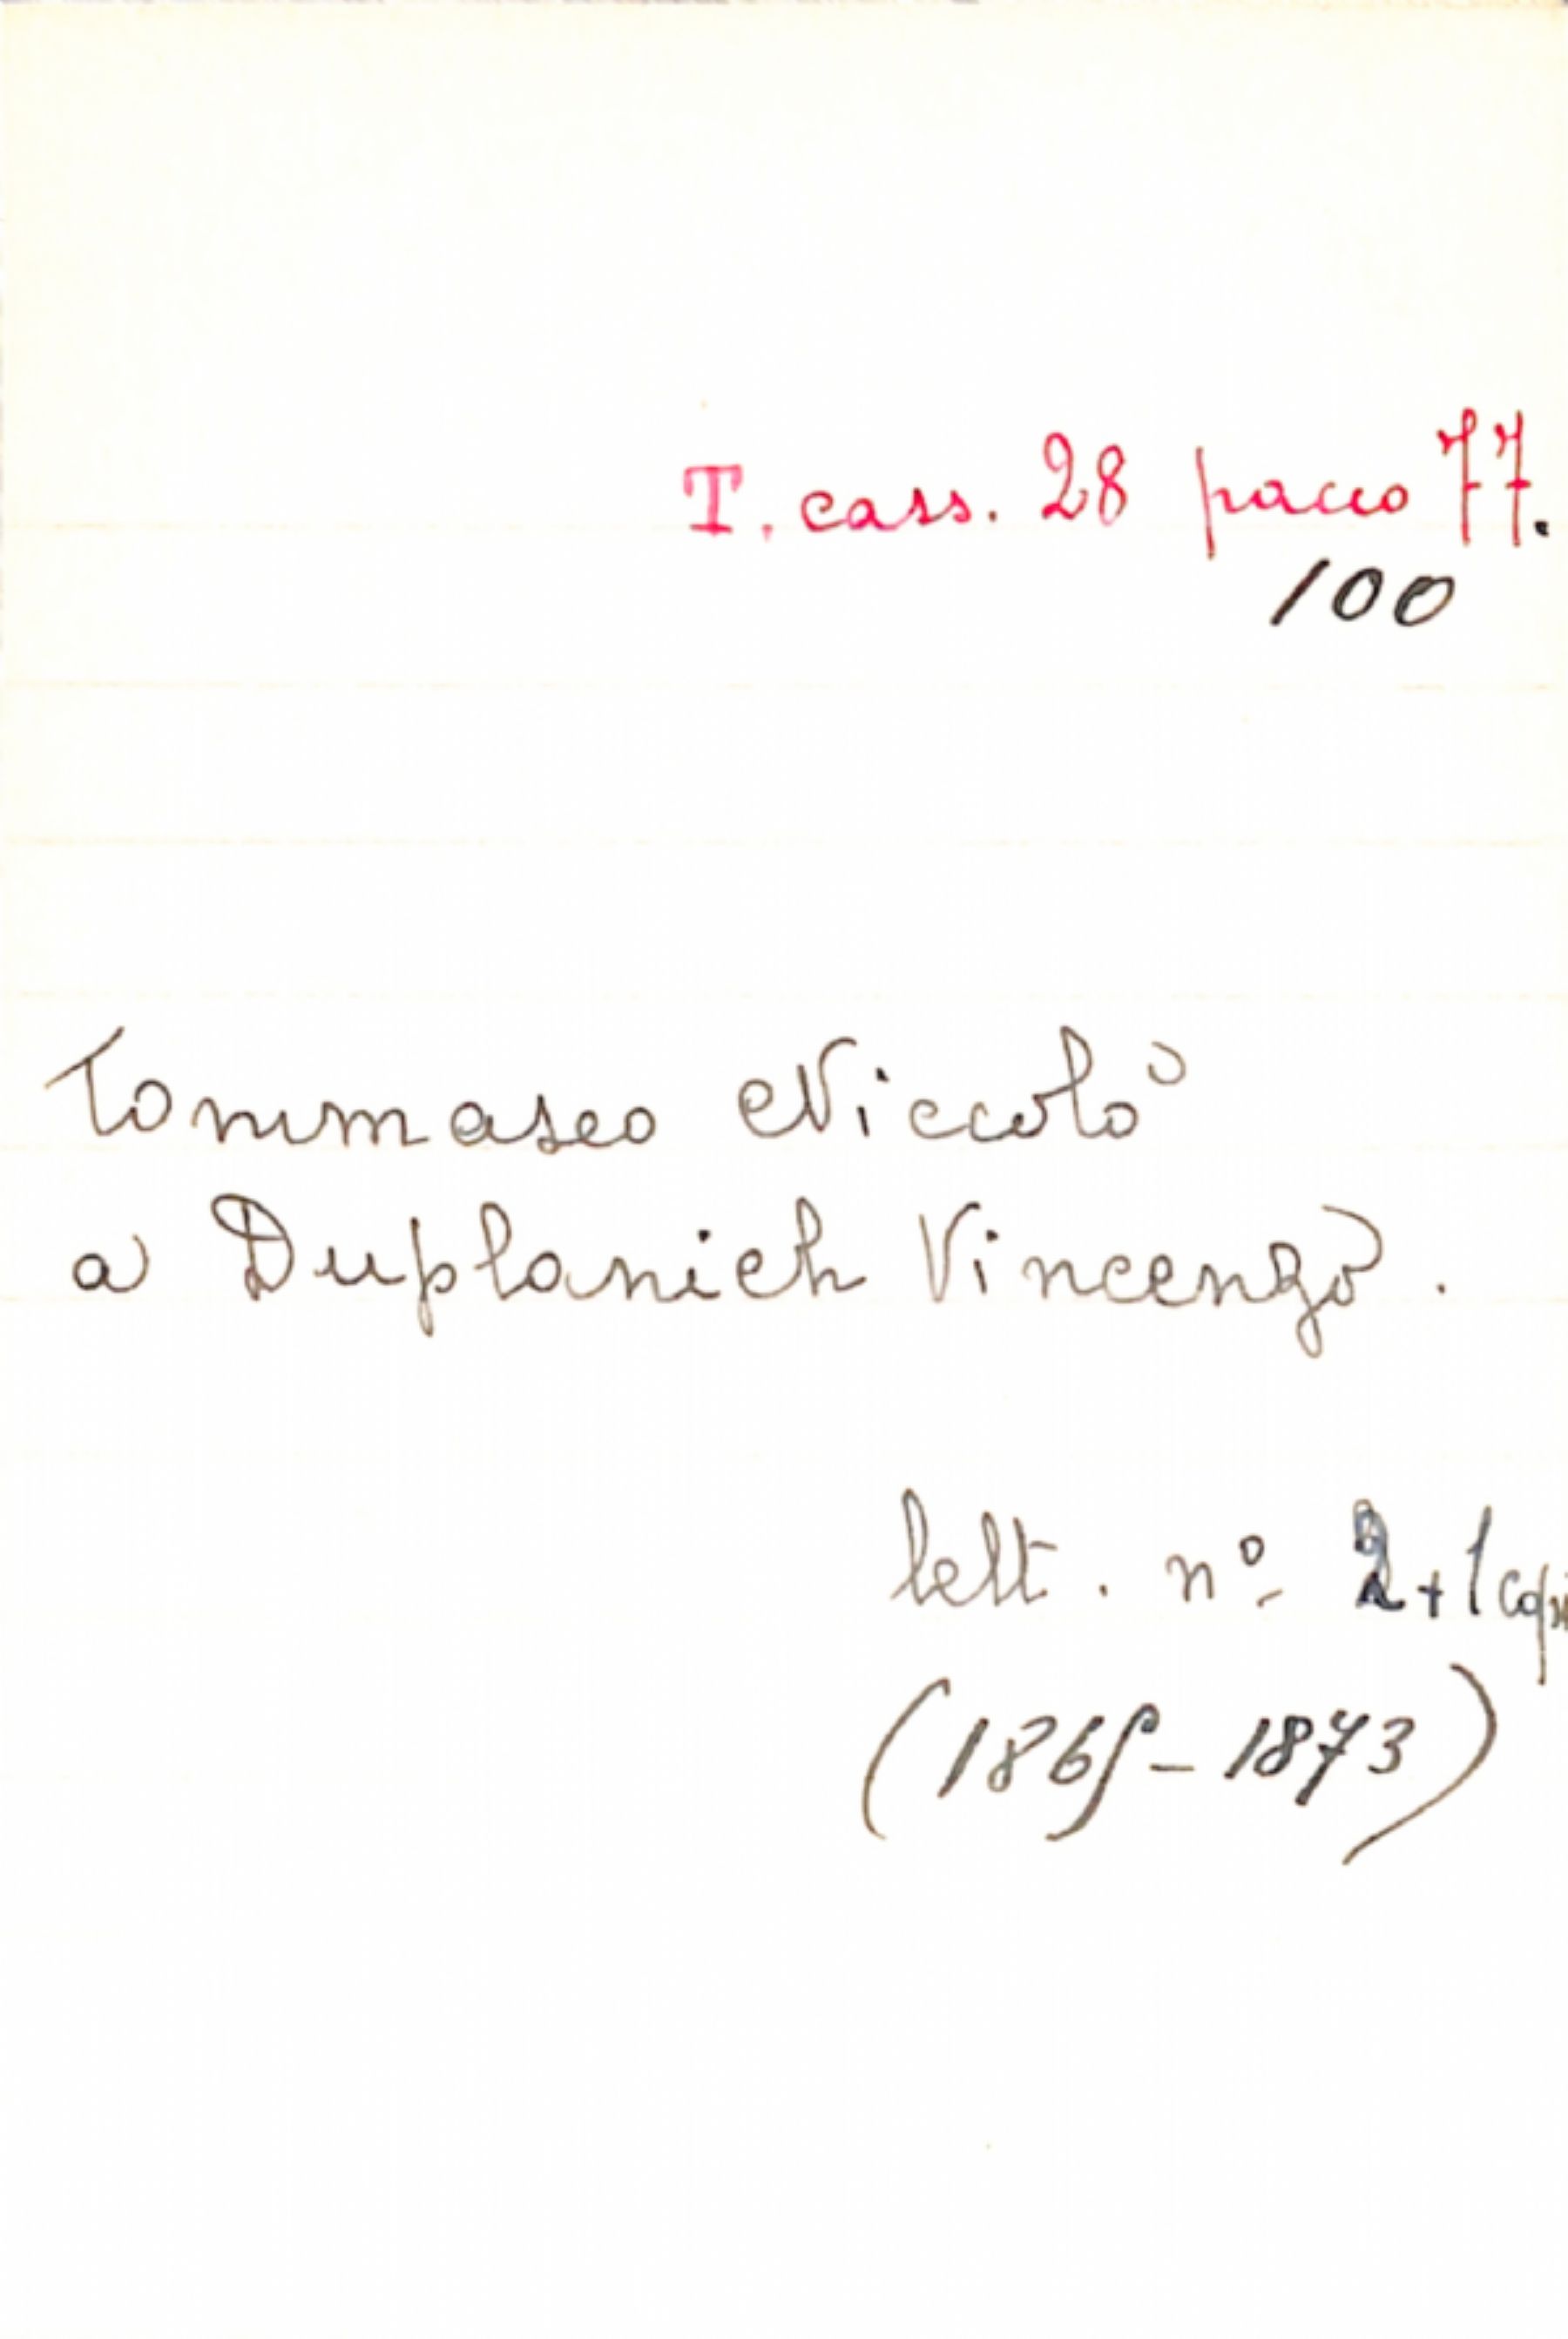 T. cass. 28 pacco 77.
100
Tommaseo Niccolò
a Duplanich Vincenzo.
lett. nº 2+1 copi
(1865-1873)